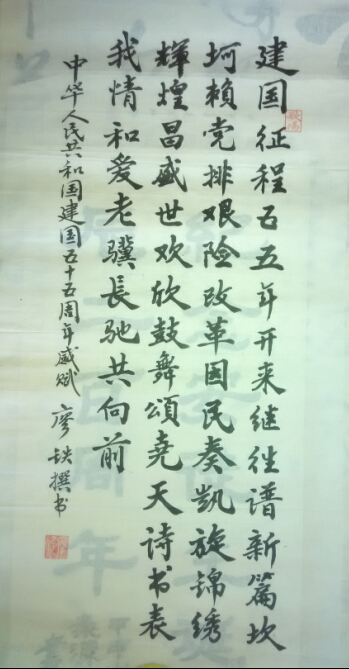 建国征程五五年开来继往谱新篇坎
坷赖党排艰险改革国民奏凯旋锦绣
輝煌昌盛世欢欣鼓舞頌尧天诗书表
我情和爱老骥長驰共向前
中华人民共和国建国五十五周年感赋 廖 撰书